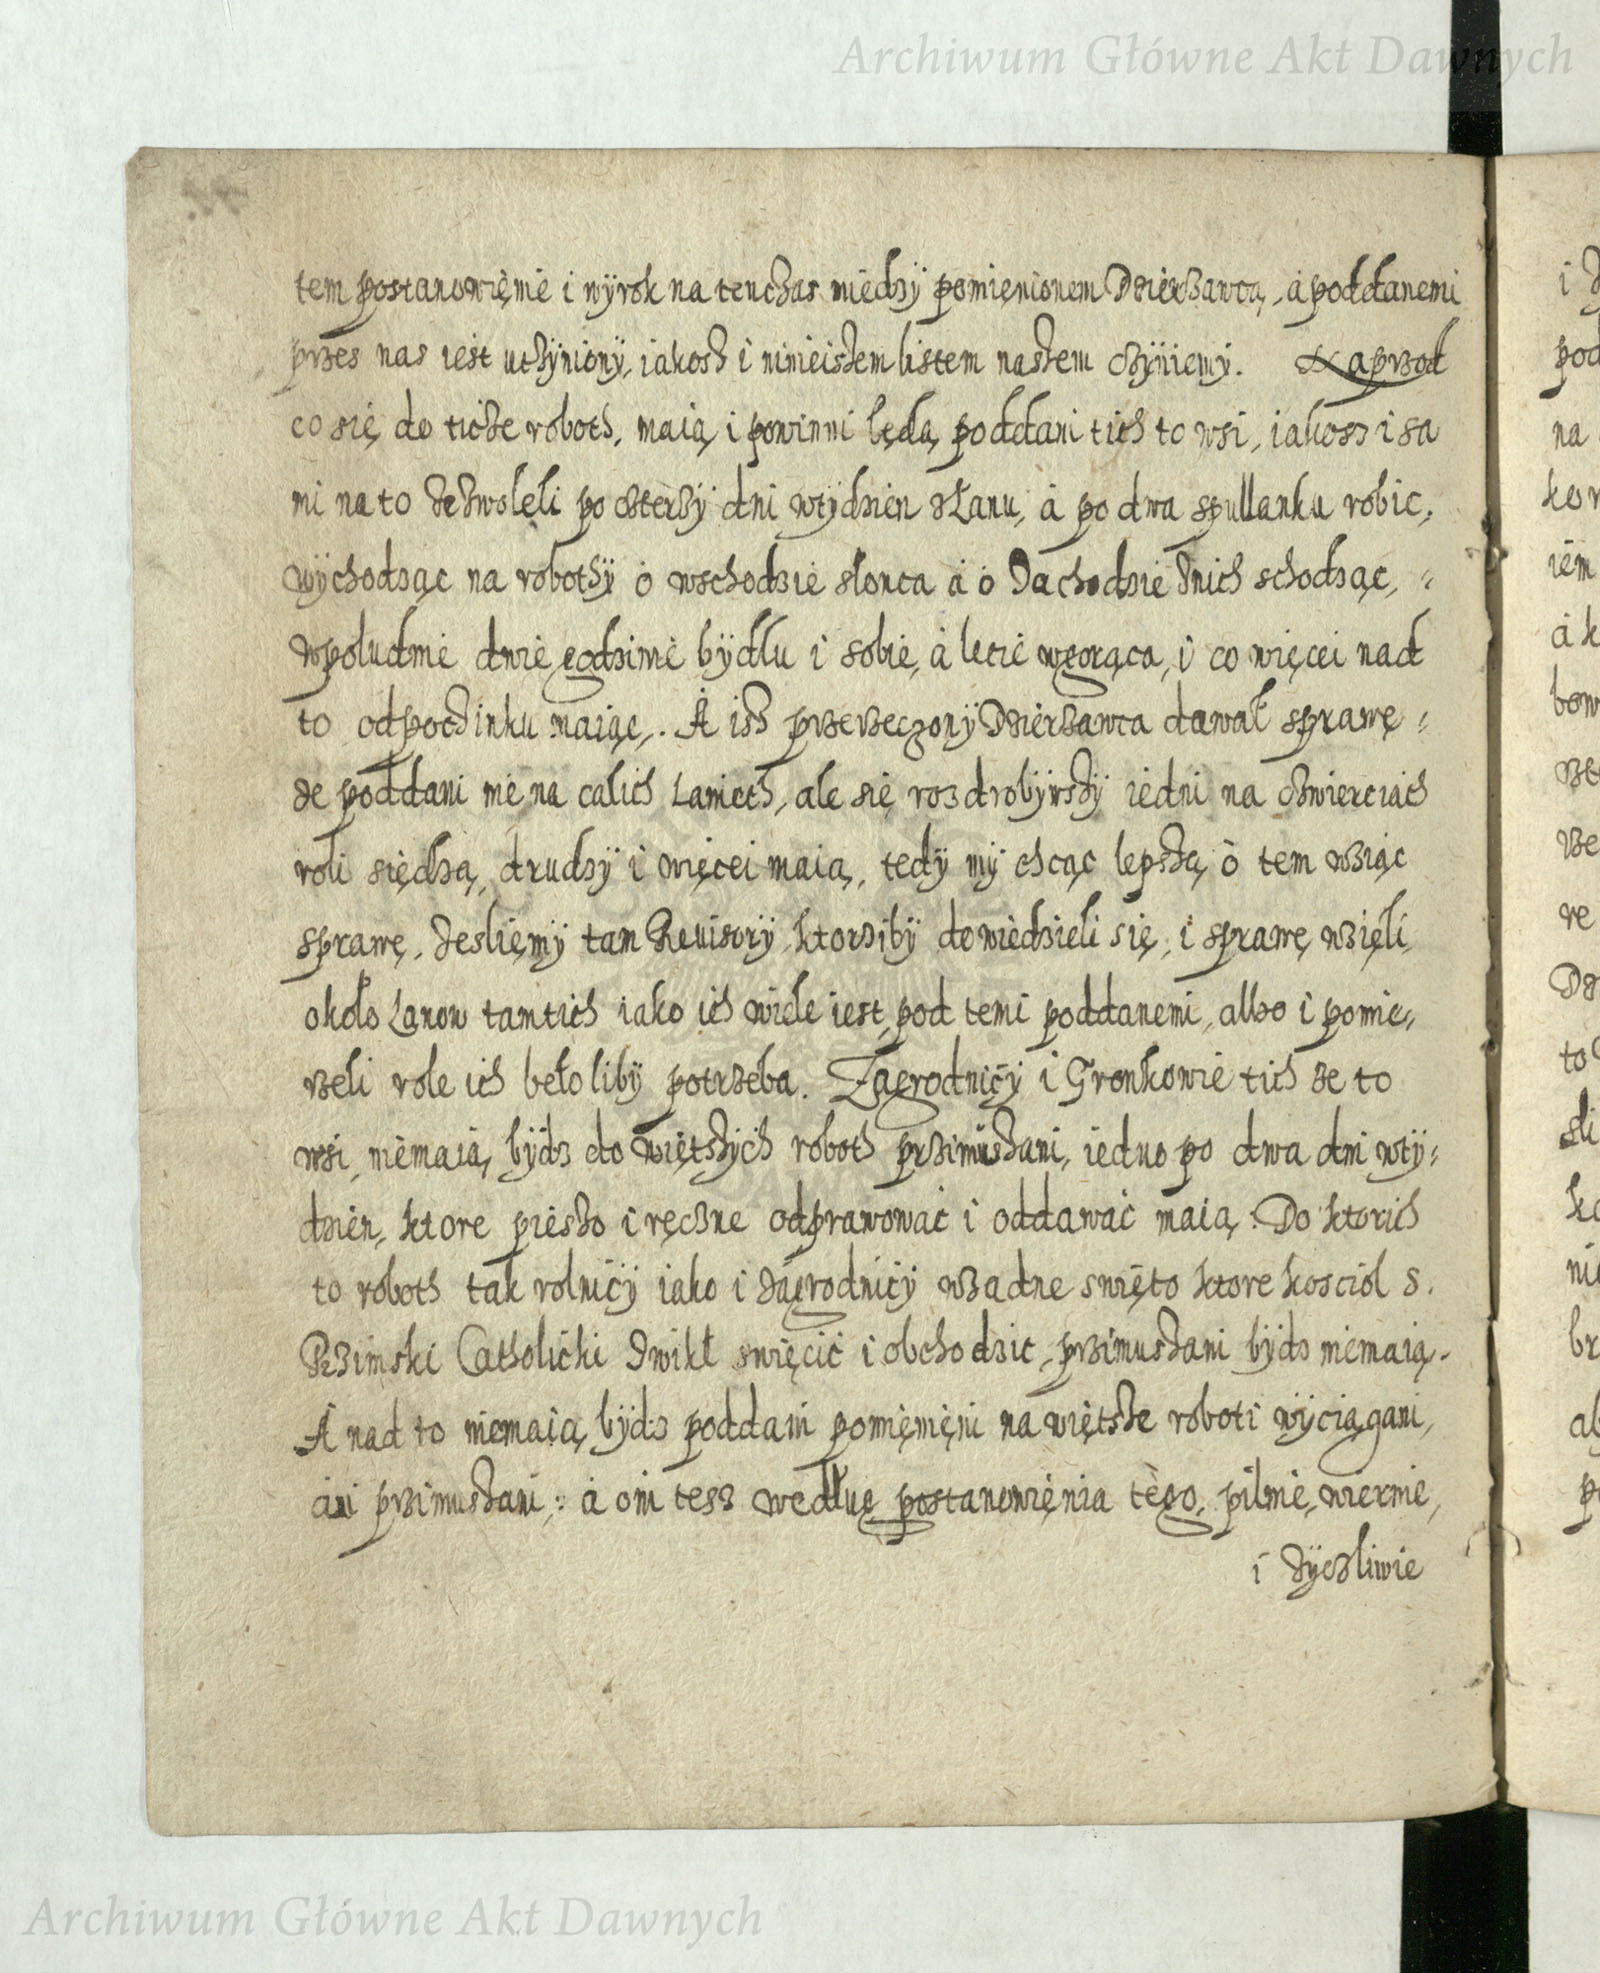 Archiwum Główne Akt Dawnych
tem postanowięnie i wyrok na tenczas między pomięnionem Dzierzawcą, á poddanemi
przes nas iest uczyniony, iakosz i ninieiszem listem naszem czyniemy. Naprzod
co się do ticze roboth, maią i powinni będą poddani tich to wsi, iakosz i sa
mi na to zezwoleli po czterzy dni wtydzien złanu, á po dwa spullanku robic,
wychodząc na robothy o wschodzie słonca á o zachodzie znich schodząc,
wpoludnie dwie godzinie bydlu i sobie, á lecie wgorąca, i co więcei nad
to odpoczinku maiąc. A isz przerzeczony Dzierzawca dawał sprawę
ze poddani nie na calich Laniech, ale się rozdrobiwszy iedni na czwierciach
roli siędzą, drudzy i więcei maią, tedy my chcąc lepszą o tem wziąc
sprawę, zesliemy tam Revisory, ktorziby dowiedzieli się, i sprawę wzięli
około Lanow tamtich iako ich wiele iest pod temi poddanemi, albo i pomie
rzeli role ich beło liby potrzeba. Zagrodnicy i Gronkowie tich ze to
wsi, niemaią bydz do więtszych roboth przimuszani, iedno po dwa dni wty
dzien, ktore pieszo i ręczne odprawować i oddawać maią. Do ktorich
to roboth tak rolnicy iako i zagrodnicy wzadne swięto ktore kosciol S.
Rzimski Catholicki zwikł swięcić i obchodzic, przimuszani bydz niemaią.
A nad to niemaią bydz poddani pomięnięni na więtsze roboti wyciągani,
ani przimuszani; á oni tesz według postanowięnia tego, pilnie, wiernie,
i zyczliwie
Archiwum Główne Akt Dawnych